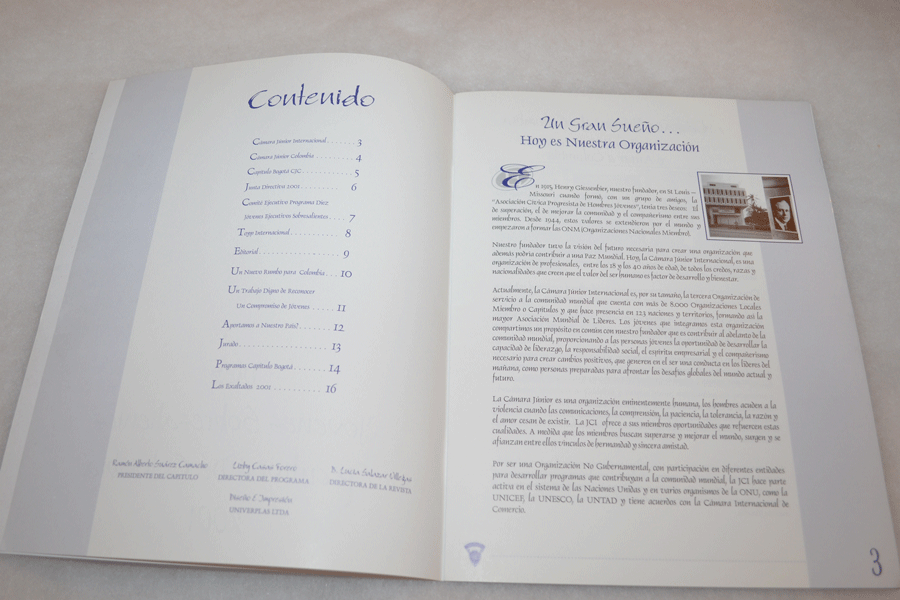 Contenido
Cámara Júnior Internacional . . . . . . . 3
Cámara Júnior Colombia . . . . . . . . 4
Capítulo Bogotá CJC . . . . . . . . . . 5
Junta Directiva 2001 . . . . . . . . . . 6
Comité Ejecutivo Programa Diez
Jóvenes Ejecutivos Sobresalientes . . . . 7
Toyp Internacional . . . . . . . . . . 8
Editorial . . . . . . . . . . . . . . 9
Un Nuevo Rumbo para Colombia . . . 10
Un Trabajo Digno de Reconocer
Un Compromiso de Jóvenes . . . . . 11
Aportamos a Nuestro País? . . . . . . . 12
Jurado. . . . . . . . . . . . . . . . . . . 13
Programas Capítulo Bogotá . . . . . . . 14
Los Exaltados 2001 . . . . . . . . . . 16
Ramón Alberto Suárez Camacho
PRESIDENTE DEL CAPITULO
DIRECTORA DEL PROGRAMA
D. Lucía Salazar Villegas
DIRECTORA DE LA REVISTA
Diseño E Impresión
UNIVERPLAS LTDA
Un Gran Sueño...
Hoy es Nuestra Organización
En 1915, Henry Giessenbier, nuestro fundador, en St. Louis –
Missouri cuando formó, con un grupo de amigos, la
"Asociación Cívica Progresista de Hombres Jóvenes", tenía tres deseos: El
de superación, el de mejorar la comunidad y el compañerismo entre sus
miembros. Desde 1944, estos valores se extendieron por el mundo y
empezaron a formar las ONM (Organizaciones Nacionales Miembro).
Nuestro fundador tuvo la visión del futuro necesaria para crear una organización que
además podría contribuir a una Paz Mundial. Hoy, la Cámara Júnior Internacional, es una
organización de profesionales, entre los 18 y los 40 años de edad, de todos los credos, razas y
nacionalidades que creen que el valor del ser humano es factor de desarrollo y bienestar.
Actualmente, la Cámara Júnior Internacional es, por su tamaño, la tercera Organización de
servicio a la comunidad mundial que cuenta con más de 9.000 Organizaciones Locales
Miembro o Capítulos y que hace presencia en 123 naciones y territorios, formando así la
mayor Asociación Mundial de Líderes. Los jóvenes que integramos esta organización
compartimos un propósito en común con nuestro fundador que es contribuir al adelanto de la
comunidad mundial, proporcionando a las personas jóvenes la oportunidad de desarrollar la
capacidad de liderazgo, la responsabilidad social, el espíritu empresarial y el compañerismo
necesario para crear cambios positivos, que generen en el ser una conducta en los líderes del
mañana, como personas preparadas para afrontar los desafíos globales del mundo actual y
futuro.
La Cámara Júnior es una organización eminentemente humana, los hombres acuden a la
violencia cuando las comunicaciones, la comprensión, la paciencia, la tolerancia, la razón y
el amor cesan de existir. La JCI ofrece a sus miembros oportunidades que refuercen estas
cualidades. A medida que los miembros buscan superarse y mejorar el mundo, surgen y se
afianzan entre ellos vínculos de hermandad y sincera amistad.
Por ser una Organización No Gubernamental, con participación en diferentes entidades
para desarrollar programas que contribuyan a la comunidad mundial, la JCI hace parte
activa en el sistema de las Naciones Unidas y en varios organismos de la ONU, como la
UNICEF, la UNESCO, la UNTAD y tiene acuerdos con la Cámara Internacional de
Comercio.
3